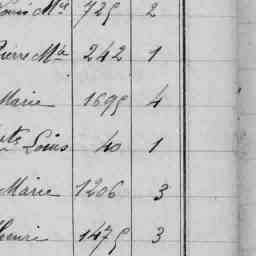 Louis Mie 725 2
Pierre Mie 242 1
Marie 1695 4
Louis 40 1
Marie 1206 3
Henri 1475 3